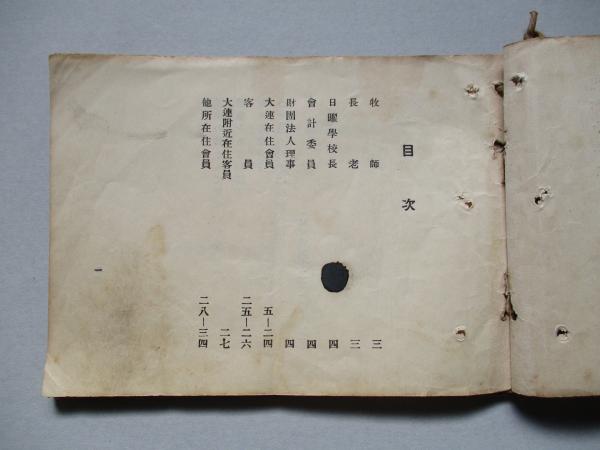 目次
牧師 三
長老 三
日曜學校長 四
會計委員 四
財團法人理事 四
大連在住會員 五―二四
客員 二五―二六
大連附近在住客員 二七
他所在住會員 二八―三四
一